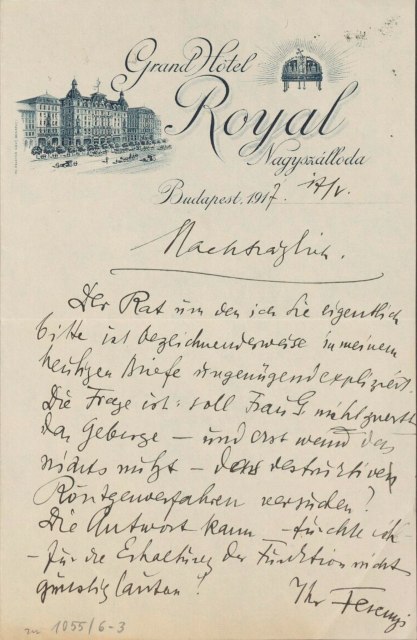 Grand Hotel
Royal
Nagyszálloda
Budapest, 1917. 17/V.
Nachträglich.
Der Rat um den ich Sie eigentlich
bitte ist bezeichnenderweise in meinem
heutigen Briefe ungenügend expliziert.
Die Frage ist: soll Frau G nicht zuerst
das Gebirge – und erst wenn das
nichts nützt – das destruktive
Röntgenverfahren versuchen?
Die Antwort kann – fürchte ich
– für die Erhaltung der Funktion nicht
günstig lauten!
Ihr Ferenczi
1055/6-3